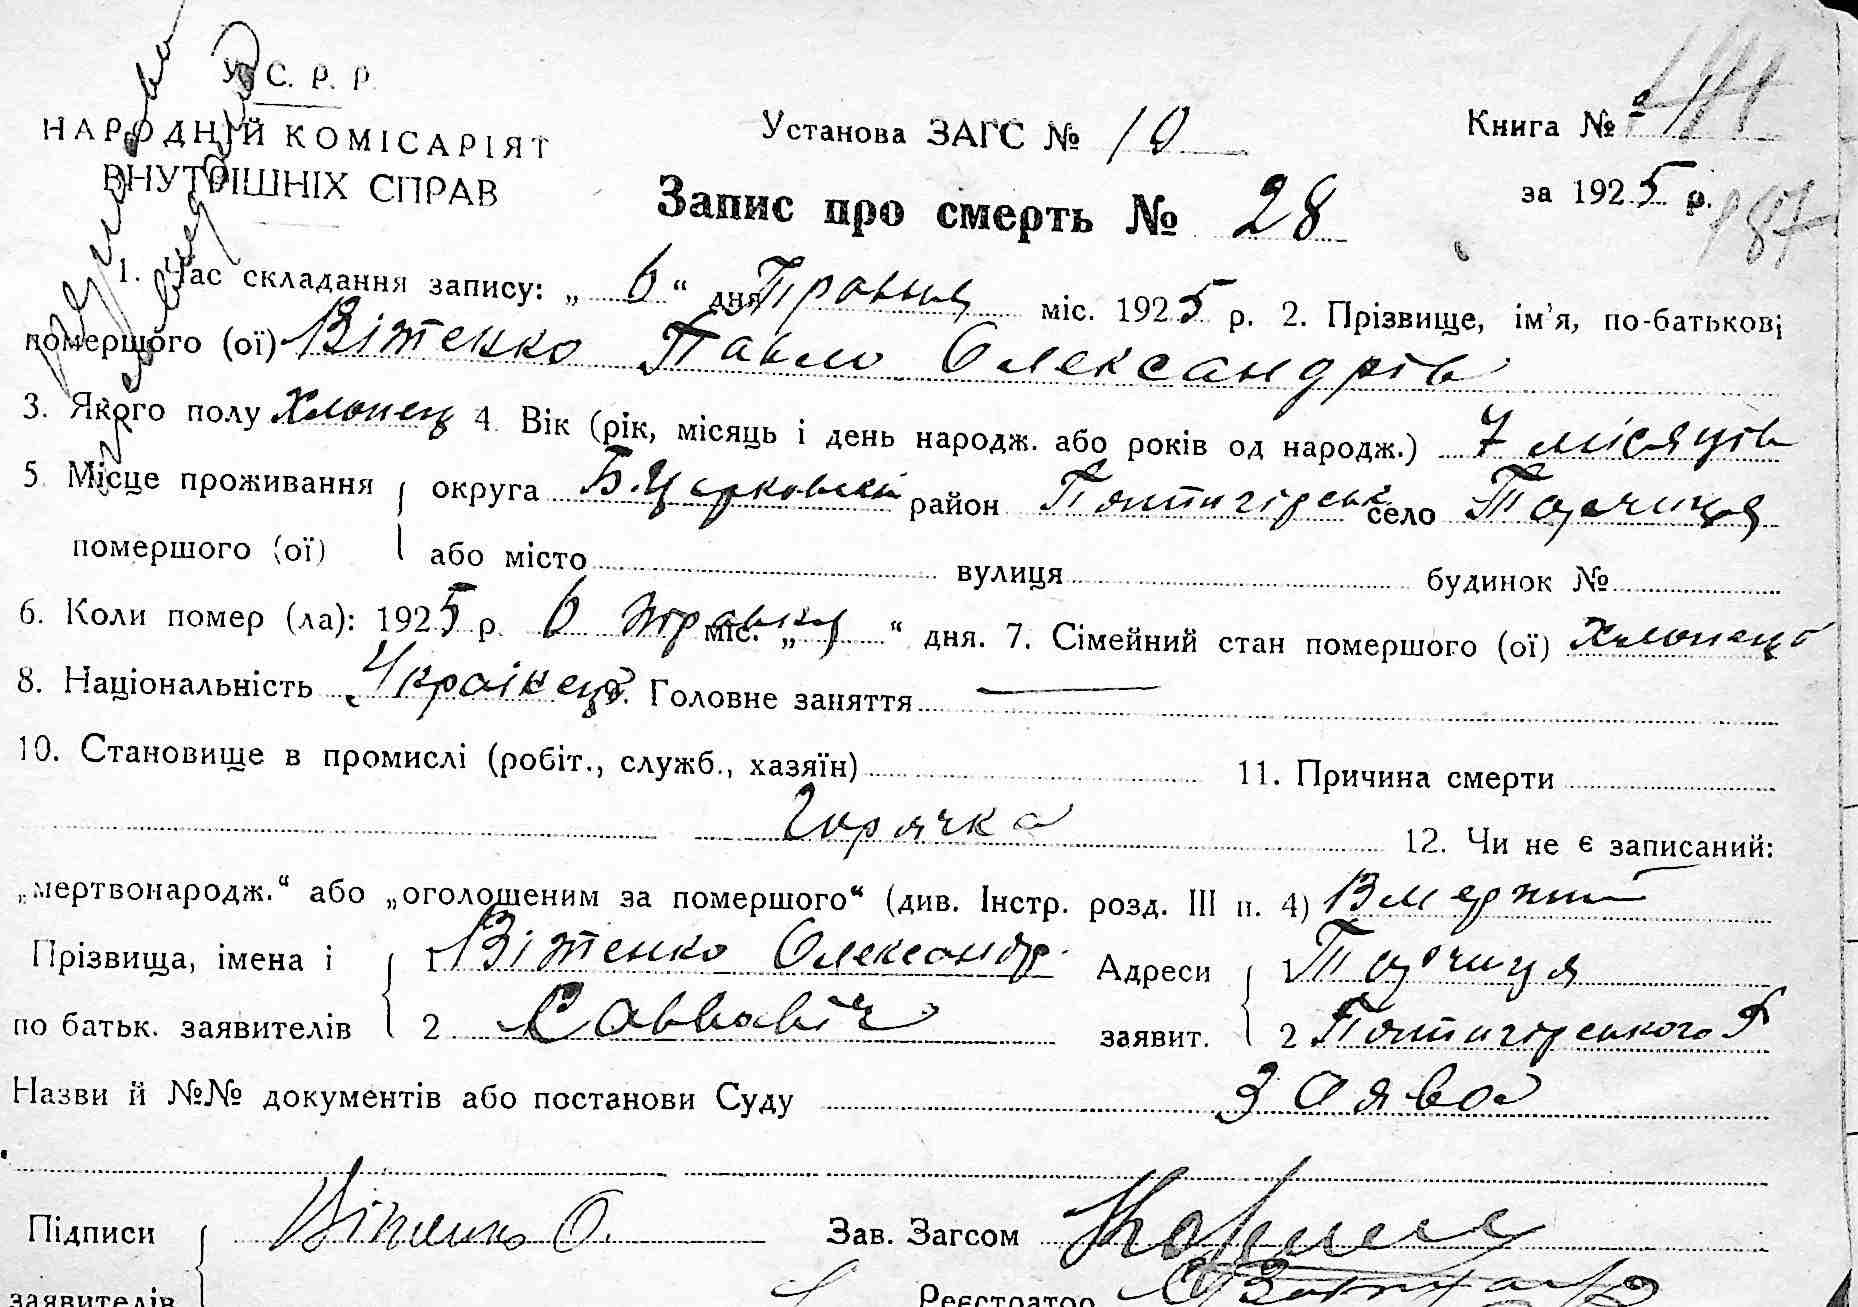 У. С. Р. Р.
НАРОДНІЙ КОМІСАРІЯТ
ВНУТРІШНІХ СПРАВ
Установа ЗАГС № 10
Книга №
за 1925 р.
187
Запис про смерть № 28
1. Час складання запису: „ 6 “ дня Травня міс. 1925 р. 2. Прізвище, ім'я, по-батькові
помершого (ої) Вітенко Павло Олександрів
3. Якого полу Хлопець 4. Вік (рік, місяць і день народж. або років од народж.) 7 місяців
5. Місце проживання округа Б. Церковськ район Пятигірськ село Тарчиця
помершого (ої) або місто вулиця будинок №
6. Коли помер (ла): 1925 р. 6 травня міс. „ “ дня. 7. Сімейний стан помершого (ої) Хлопець
8. Національність Українець 9. Головне заняття —
10. Становище в промислі (робіт., служб., хазяїн) 11. Причина смерти
Горячка 12. Чи не є записаний:
„мертвонародж.“ або „оголошеним за помершого“ (див. Інстр. розд. III п. 4) Вмерший
Прізвища, імена і 1 Вітенко Олександр Адреси 1 Тарчиця
по батьк. заявителів 2 Саввавіч заявит. 2 Пятигірського Р
Назви й №№ документів або постанови Суду Заява
Підписи Вітенко О. Зав. Загсом
заявителів Реєстратор